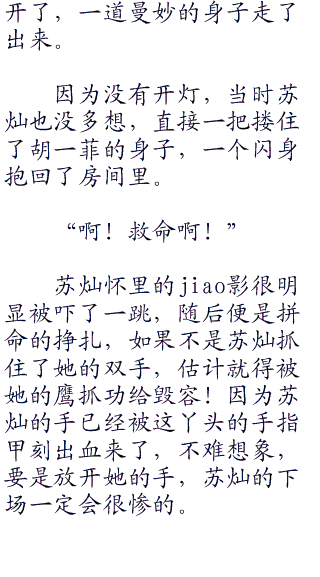 开了，一道曼妙的身子走了
出来。
因为没有开灯，当时苏
灿也没多想，直接一把搂住
了胡一菲的身子，一个闪身
抱回了房间里。
“啊！救命啊！”
苏灿怀里的jiao影很明
显被吓了一跳，随后便是拼
命的挣扎，如果不是苏灿抓
住了她的双手，估计就得被
她的鹰抓功给毁容！因为苏
灿的手已经被这丫头的手指
甲刻出血来了，不难想象，
要是放开她的手，苏灿的下
场一定会很惨的。